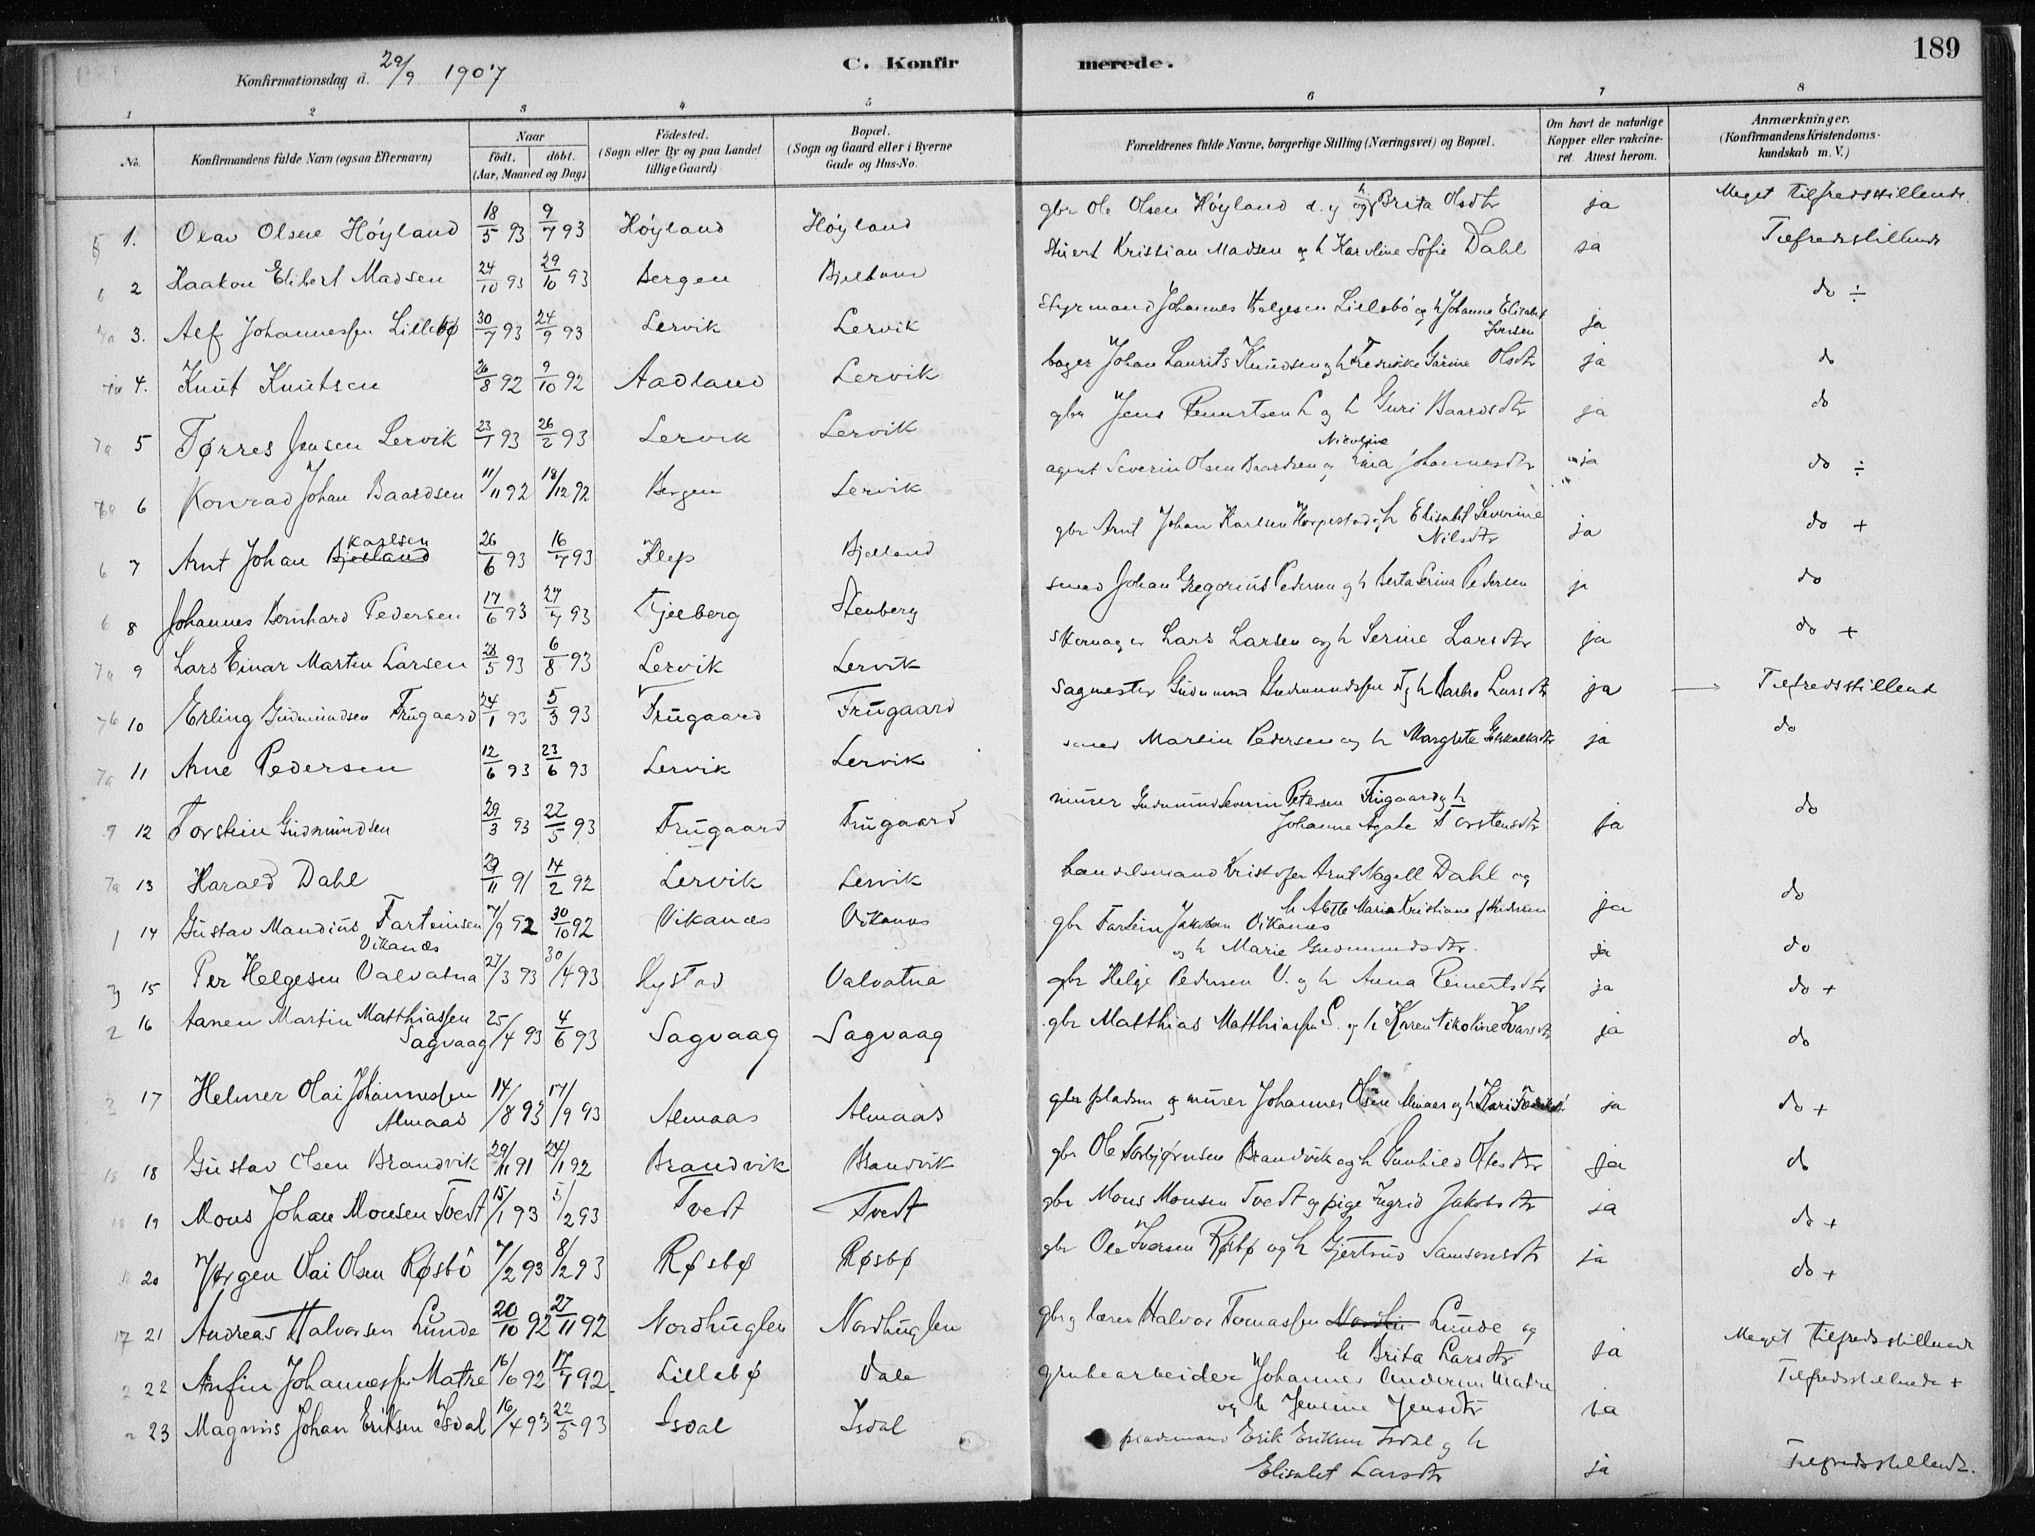 189
Konfirmationsdag d. 29/9 1907
C. Konfirmerede.
1 2 3 4 5 6 7 8
No. Konfirmandens fulde Navn (ogsaa Efternavn) Naar født. døbt. (Aar, Maaned og Dag) Fødested. (Sogn eller By og paa Landet tillige Gaard) Bopæl. (Sogn og Gaard eller i Byerne Gade og Hus-No. Forældrenes fulde Navne, borgerlige Stilling (Næringsvei) og Bopæl. Om havt de naturlige Kopper eller vakcineret Attest herom. Anmærkninger. (Konfirmandens Kristendomskundskab m. V.)
1. Olav Olsen Höyland 18/5 93 9/7 93 Höyland Höyland gbr Ole Olsen Höyland d. y og h Brita Olsdtr ja Meget tilfredsstillende.
2 Haakon Elibert Madsen 24/10 93 29/10 93 Bergen Bjelland Kristian Madsen og h Karoline Sofie Dahl ja Tilfredsstillende
3. Alf Johannessen Lillebø 30/7 93 24/9 93 Lervik Lervik Styrmand Johannes Helgesen Lillebö og h Johanne Elisabet Iversen ja do ÷
4. Knut Knutsen 26/8 92 9/10 92 Aadland Lervik bager Johan Laurits Knudsen og h Fredrikke Gurine Olsdtr ja do
5 Tørres Jensen Lervik 23/1 93 26/2 93 Lervik Lervik gbr Jens Reinertsen L og h Guri Baardsdtr ja do
6 Konrad Johan Baardsen 11/11 92 18/12 92 Bergen Lervik agent Severin Olsen Baardsen og Nicoline Johannesdtr ja do ÷
7 Arnt Johan Karlsen Bjelland 26/6 93 16/7 93 Klep Bjelland gbr Arnt Johan Karlsen Horpestad og h Elisabet Severine Nilsdtr ja do +
8 Johannes Bernhard Pedersen 17/6 93 27/7 93 Fjelberg Stenberg smed Johan Gregorius Pedersen og h Berta Serina Pedersen ja do
9 Lars Einar Martin Larsen 28/5 93 6/8 93 Lervik Lervik Skomager Lars Larsen og h Serine Larsdtr ja do +
10 Erling Gudmundsen Frugaard 24/1 93 5/3 93 Frugaard Frugaard Sagmester Gudmund Gudmundssen F og h Barbro Larsdtr ja Tilfredsstillend
11 Arne Pedersen 12/6 93 23/6 93 Lervik Lervik smed Martin Pedersen og h Margrete ja do
12 Torstein Gudmundsen 29/3 93 22/5 93 Frugaard Frugaard murer Gudmund Severin Petersen Frugaard og h Johanne Agate Torstensdtr ja do
13 Harald Dahl 29/11 91 14/2 92 Lervik Lervik handelsmand Kristofer Arnt Nagell Dahl og h Alette Maria Kristiane ja do
14 Gustav Mandius Farteinsen Vikanes 7/9 92 30/10 92 Vikanes Vikanes gbr Fartein Jakobsen Vikanes og h Marie Gudmundsdtr. ja do
15 Per Helgesen Valvatna 27/3 93 30/4 93 Hystad Valvatna gbr Helge Pedersen V. og h Anna Reinertsdtr ja do +
16 Aanen Martin Matthiassen Sagvaag 25/4 93 4/6 93 Sagvaag Sagvaag gbr Matthias Matthiassen S. og h Karen Nikoline Ivarsdtr ja do
17 Helmer Olai Johannessen Almaas 14/8 93 17/9 93 Almaas Almaas pladsm og murer Johannes Olsen Almaas og h Kari ja do +
18 Gustav Olsen Brandvik 29/11 91 24/1 92 Brandvik Brandvik gbr Ole Torbjørnsen Brandvik og h Gunhild ja do
19 Mons Johan Monsen Tvedt 15/1 93 5/2 93 Tvedt Tvedt gbr Mons Monsen Tvedt og pige Ingrid Jakobsdtr ja do +
20 Jørgen Olai Olsen Røsbö 7/2 93 8/2 93 Røsbø Røsbø gbr Ole Iversen Røsbø og h Gjertrud Samsonsdtr ja do +
21 Andreas Halvorsen Lunde 20/10 92 27/11 92 Nordhuglen Nordhuglen gbr og lærer Halvor Tomassen Lunde og h Brita Larsdtr ja Meget tilfredsstillende
22 Anfin Johannessen Matre 16/6 92 17/7 92 Lillebø Dale grubearbeider Johannes Andersen Matre og h Jensine Jensdtr ja Tilfredsstillende +
23 Magnus Johan Eriksen Isdal 16/4 93 22/5 93 Isdal Isdal pladsmand Erik Eriksen Isdal og h Elisabet Larsdtr ja Tilfredsstillende.